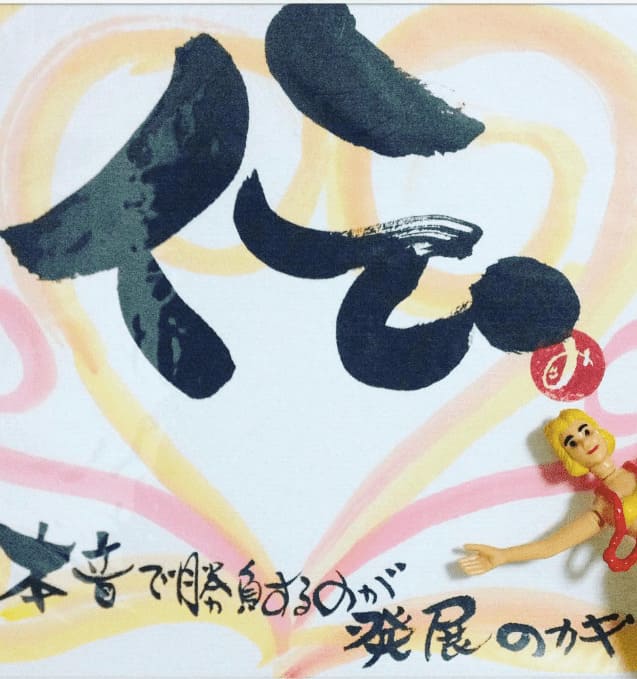 伝
本音で勝負するのが
発展のカギ